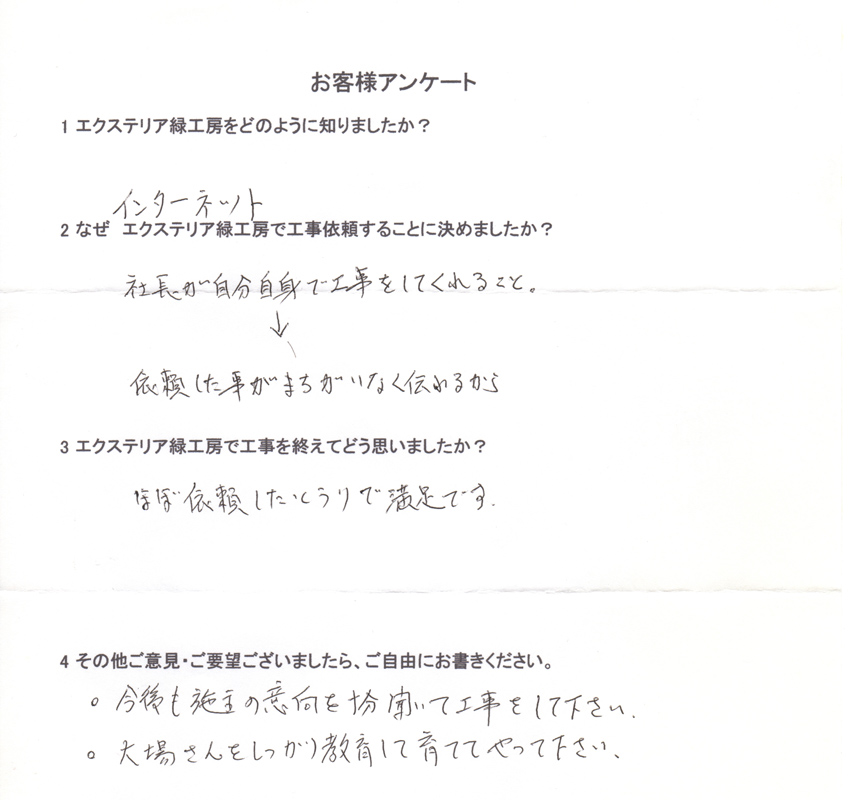 お客様アンケート
1 エクステリア緑工房をどのように知りましたか？
インターネット
2 なぜ　エクステリア緑工房で工事依頼することに決めましたか？
社長が自分自身で工事をしてくれること。
↓
依頼した事がまちがいなく伝わるから
3 エクステリア緑工房で工事を終えてどう思いましたか？
ほぼ依頼したとうりで満足です.
4 その他ご意見・ご要望ございましたら、ご自由にお書きください。
○ 今後も施主の意向を十分聞いて工事をして下さい.
○ 大場さんをしっかり教育して育ててやって下さい、